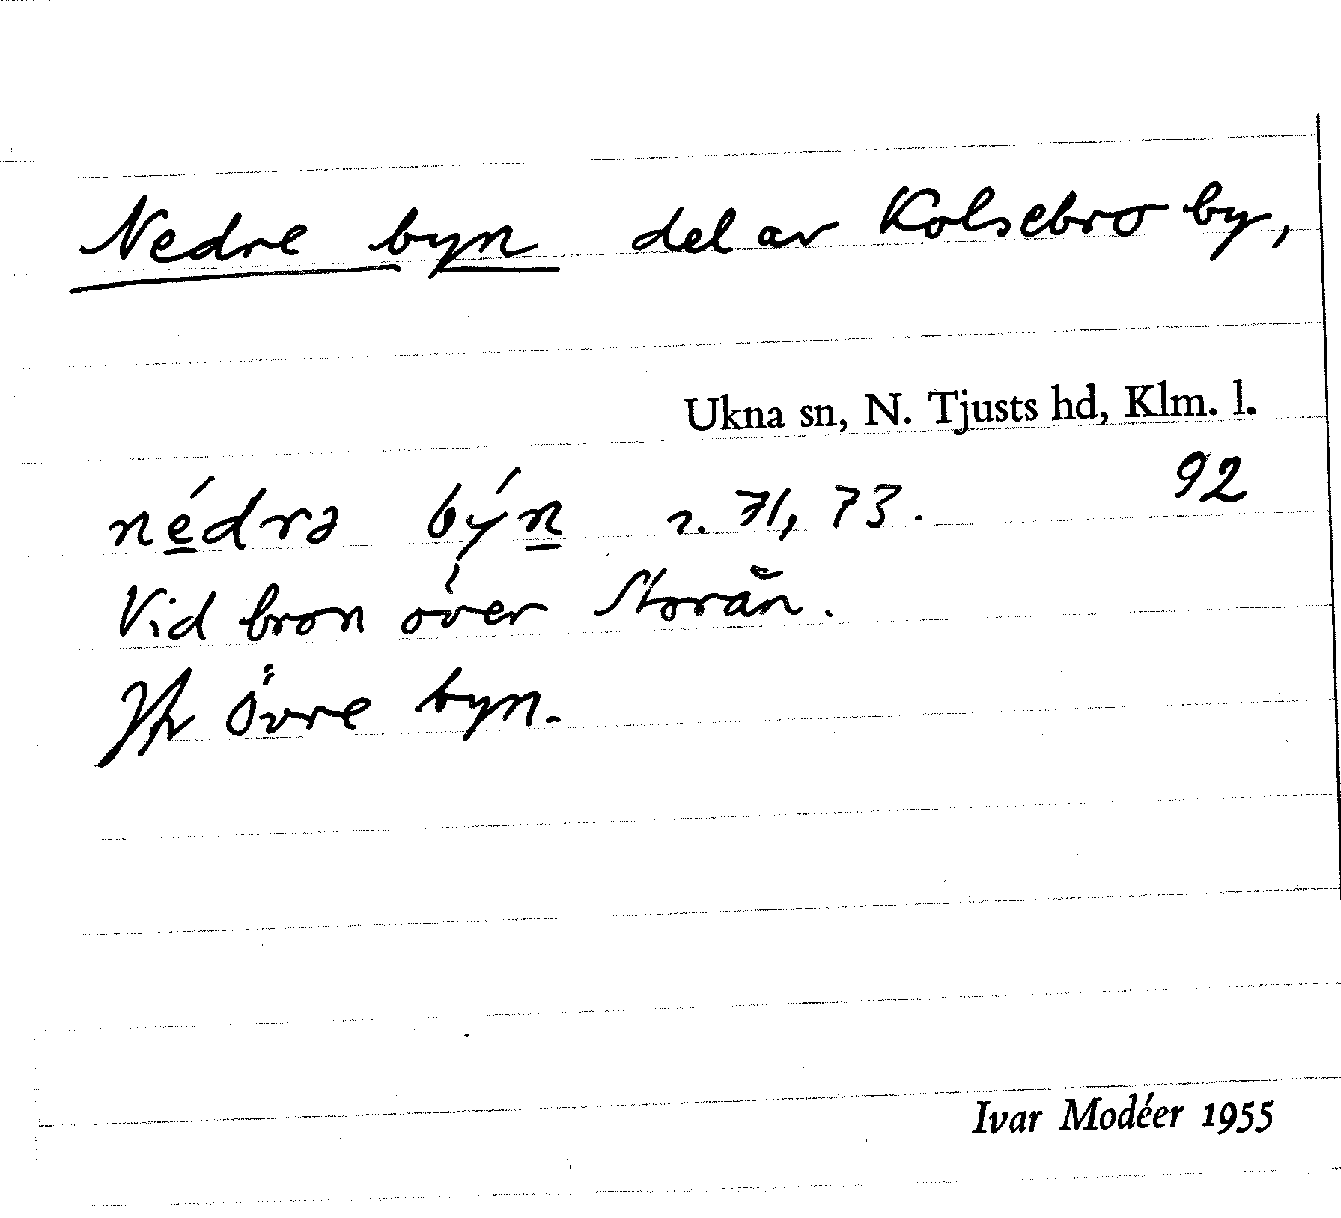 Nedre byn del av Kolsebro by,
Ukna sn, N. Tjusts hd, Klm. l.
92
nédrə býn r. 71, 73.
Vid bron över Storån.
Jfr Övre byn.
Ivar Modéer 1955